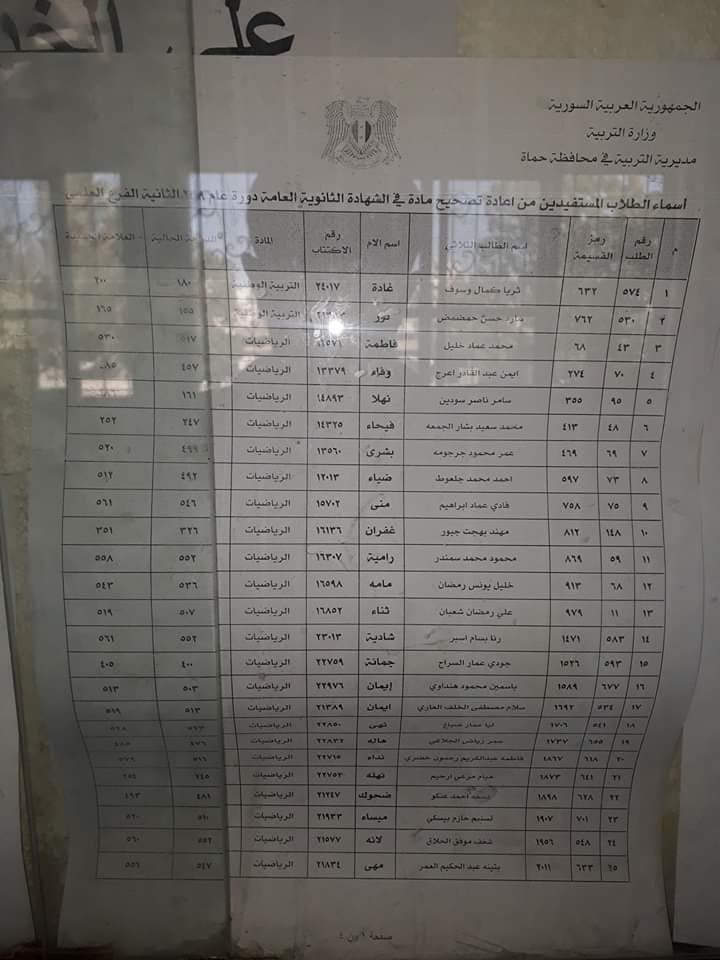 على
الجمهورية العربية السورية
وزارة التربية
مديرية التربية في محافظة حماة
أسماء الطلاب المستفيدين من اعادة تصحيح مادة في الشهادة الثانوية العامة دورة عام الثانية الفرع العلمي
م رقم الطلب رمز القسيمة اسم الطالب الثلاثي اسم الام رقم الاكتتاب المادة الحالية العلامة
١ ٥٧٤ ٦٣٢ ثريا كمال وسوف غادة ٢٤٠١٧ التربية الوطنية ١٨٠ ٢٠٠
٢ ٥٣٠ ٧٦٢ حسن حمضمض نور التربية ١٥٥ ١٦٥
٣ ٤٣ ٦٨ محمد عماد خليل فاطمة الرياضيات ٥١٧ ٥٣٠
٤ ٧٠ ٢٧٤ ايمن عبد القادر اعرج وفاء ١٣٣٧٩ الرياضيات ٤٥٧
٥ ٩٥ ٣٥٥ سامر ناصر سودين نهلا ١٤٨٩٣ الرياضيات ١٦١
٦ ٤٨ ٤١٣ محمد سعيد بشار الجمعه فيحاء ١٤٣٢٥ الرياضيات ٢٤٧ ٢٥٢
٧ ٦٩ ٤٦٩ عمر محمود جرجومه بشرى ١٣٥٦٠ الرياضيات ٤٩٩ ٥٢٠
٨ ٧٣ ٥٩٧ احمد محمد جلعوط ضياء ١٢٠١٣ الرياضيات ٤٩٢ ٥١٢
٩ ٧٥ ٧٥٨ فادي عماد ابراهيم منى ١٥٧٠٢ الرياضيات ٥٤٦ ٥٦١
١٠ ١٤٨ ٨١٢ مهند بهجت جبور غفران ١٦١٣٦ الرياضيات ٣٢٦ ٣٥١
١١ ٥٩ ٨٦٩ محمود محمد سمندر رامية ١٦٣٠٧ الرياضيات ٥٥٢ ٥٥٨
١٢ ٦٨ ٩١٣ خليل يونس رمضان مامه ١٦٥٩٨ الرياضيات ٥٣٦ ٥٤٣
١٣ ١١ ٩٧٩ علي رمضان شعبان ثناء ١٦٨٥٢ الرياضيات ٥٠٧ ٥١٩
١٤ ٥٨٣ ١٤٧١ رنا بسام اسبر شادية ٢٣٠١٣ الرياضيات ٥٥٢ ٥٦١
١٥ ٥٩٣ ١٥٢٦ جودي عمار السراج جمانة ٢٢٧٥٩ الرياضيات ٤٠٠ ٤٠٥
١٦ ٦٧٧ ١٥٨٩ ياسمين محمود هنداوي إيمان ٢٢٩٧٦ الرياضيات ٥٠٣ ٥١٣
١٧ ٥٣٤ ١٦٩٢ سلام مصطفى الخلف الغازي ايمان ٢١٣٨٩ الرياضيات ٥١٣ ٥١٩
١٨ ٥٤١ ١٧٠٦ عمار صباغ نهى ٢٢٨٥٠ الرياضيات
١٩ ٦٥٥ ١٧٣٧ سمر رياض هاله ٢٢٨٣٢ الرياضيات
٢٠ ٦١٨ ١٨٦٧ فاطمه عبدالكريم رحمون خضري نداء ٢٢٧١٥ الرياضيات
٢١ ٦٤١ ١٨٧٣ مرعي نهله ٢٢٧٥٣ الرياضيات ٢٤٥
٢٢ ٦٢٨ ١٨٩٨ احمد عنكو ضحوك ٢١٢٤٧ الرياضيات ٤٨١ ٤٩٣
٢٣ ٧٠١ ١٩٠٧ تسنيم حازم بيسكي ميساء ٢١٩٣٣ الرياضيات ٥١٠ ٥٢٠
٢٤ ٥٤٨ ١٩٥٦ شغف موفق الحلاق لانه ٢١٥٧٧ الرياضيات ٥٥٢ ٥٦٠
٢٥ ٦٣٣ ٢٠١١ بثينه عبد الحكيم العمر مهى ٢١٨٣٤ الرياضيات ٥٤٧ ٥٥٦
صفحة ١ من ٤